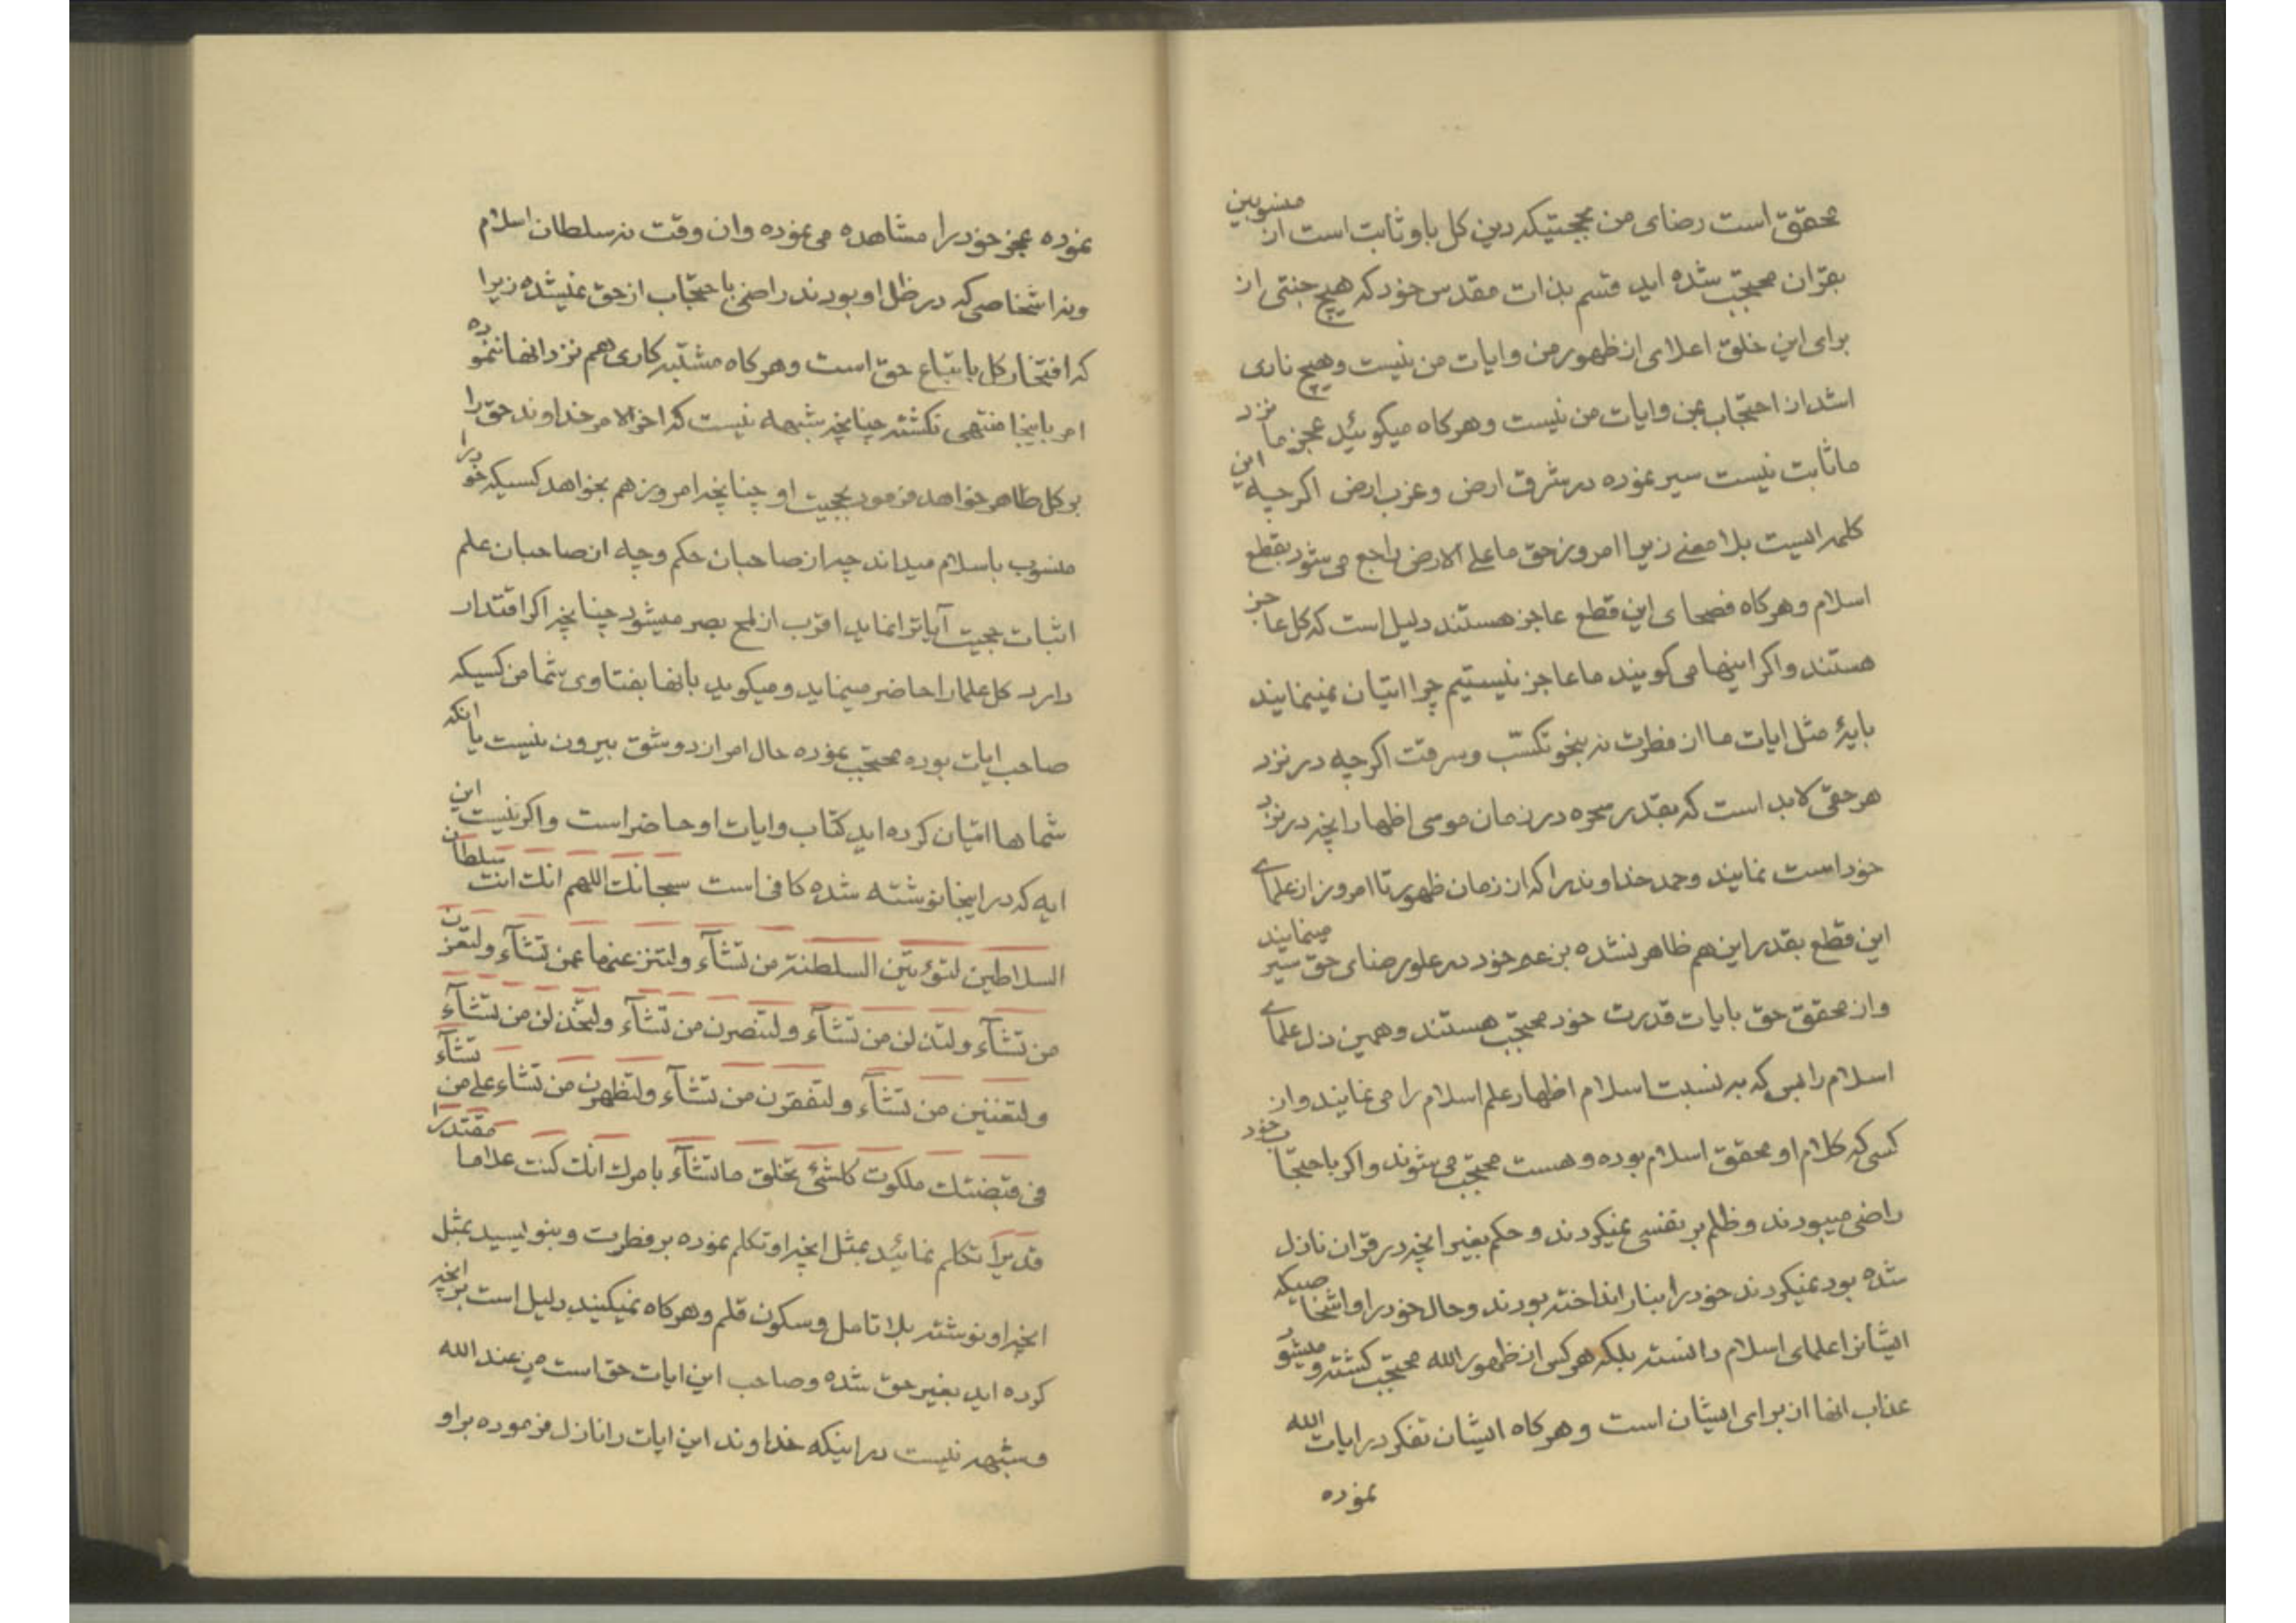 محقق است رضای من بحجتیکه دین کل باو ثابت است ای منسوبین
بقران محتجب شده اید قسم بذات مقدس خود که هیچ جنتی از
برای این خلق اعلای از ظهور من و ایات من نیست و هیچ ناری
اشد از احتجاب بمن و ایات من نیست و هرکاه میکوئید عجز ما نزد
ما ثابت نیست سیر نموده در شرق ارض و غرب ارض اکرچه این
کلمه ایست بلا معنی زیرا امروز حق ما علی الارض راجع می شود بقطع
اسلام و هرکاه فصحای این قطع عاجز هستند دلیل است که کل عاجز
هستند و اکر اینها می کویند ما عاجز نیستیم چرا اتیان نمینمایند
بایهٔ مثل ایات ما از فطرت نه بنحو تکسّب و سرقت اکرچه در نزد
هر حقی لابد است که بقدر سحره در زمان موسی اظهار انچه در نزد
خود است نمایند و حمد خداوند را که از زمان ظهور تا امروز از علمای
این قطع بقدر این هم ظاهر نشده بزعم خود در علو رضای حق سیر مینمایند
و از محقق حق بایات قدرت خود محتجب هستند و همین ذل علمای
اسلام را بس که به نسبت اسلام اظهار علم اسلام را می نمایند و از
کسی که کلام او محقق اسلام بوده و هست محتجب می شوند و اکر باحتجاب خود
راضی میبودند و ظلم بر نفسی نمیکردند و حکم بغیر انچه در قران نازل
شده بود نمیکردند خود را بنار انداخته بودند و حال خود را و اشخاصیکه
ایشانرا علمای اسلام دانسته بلکه هر کس از ظهور الله محتجب کشته و میشود
عذاب انها از برای ایشان است و هرکاه ایشان تفکر در ایات الله
نموده
نموده عجز خود را مشاهده می نموده وان وقت نه سلطان اسلام
و نه اشخاصی که در ظل او بودند راضی باحتجاب از حق نمیشده زیرا
که افتخار کل باتباع حق است و هرکاه مشتبه کاری هم نزد انها ننموده
امر باینجا منتهی نکشته چنانچه شبهه نیست که اخر الامر خداوند حق را
بر کل ظاهر خواهد فرمود بحجیت او چنانچه امروز هم بخواهد کسیکه خود را
منسوب باسلام میداند چه از صاحبان حکم و چه از صاحبان علم
اثبات حجیت آیاترا نماید اقرب از لمح بصر میشود چنانچه اکر اقتدار
دارد کل علما را حاضر مینماید و میکوید بانها بفتاوی شما من کسیکه
صاحب ایات بوده محتجب نموده حال امر از دو شق بیرون نیست یا انکه
شماها اتیان کرده اید کتاب و ایات او حاضر است و اکر نیست این
ایه که در اینجا نوشته شده کافی است سبحانك اللهم انك انت سلطان
السلاطین لتؤتین السلطنة من تشآء ولتنزعنها عمن تشآء ولتعزن
من تشآء ولتذلن من تشآء ولتنصرن من تشآء ولتخذلن من تشآء
ولتغنین من تشآء ولتفقرن من تشآء ولتظهرن من تشاء علی من تشآء
فی قبضتك ملکوت کلشئ تخلق ما تشآء بامرك انك کنت علاما مقتدرا
قدیرا تکلم نمائید بمثل انچه او تکلم نموده بر فطرت و بنویسید بمثل
انچه او نوشته بلا تامل و سکون قلم و هرکاه نمیکنید دلیل است بر انچه
کرده اید بغیر حق شده و صاحب این ایات حق است من عند الله
و شبهه نیست در اینکه خداوند این ایات را نازل فرموده بر او